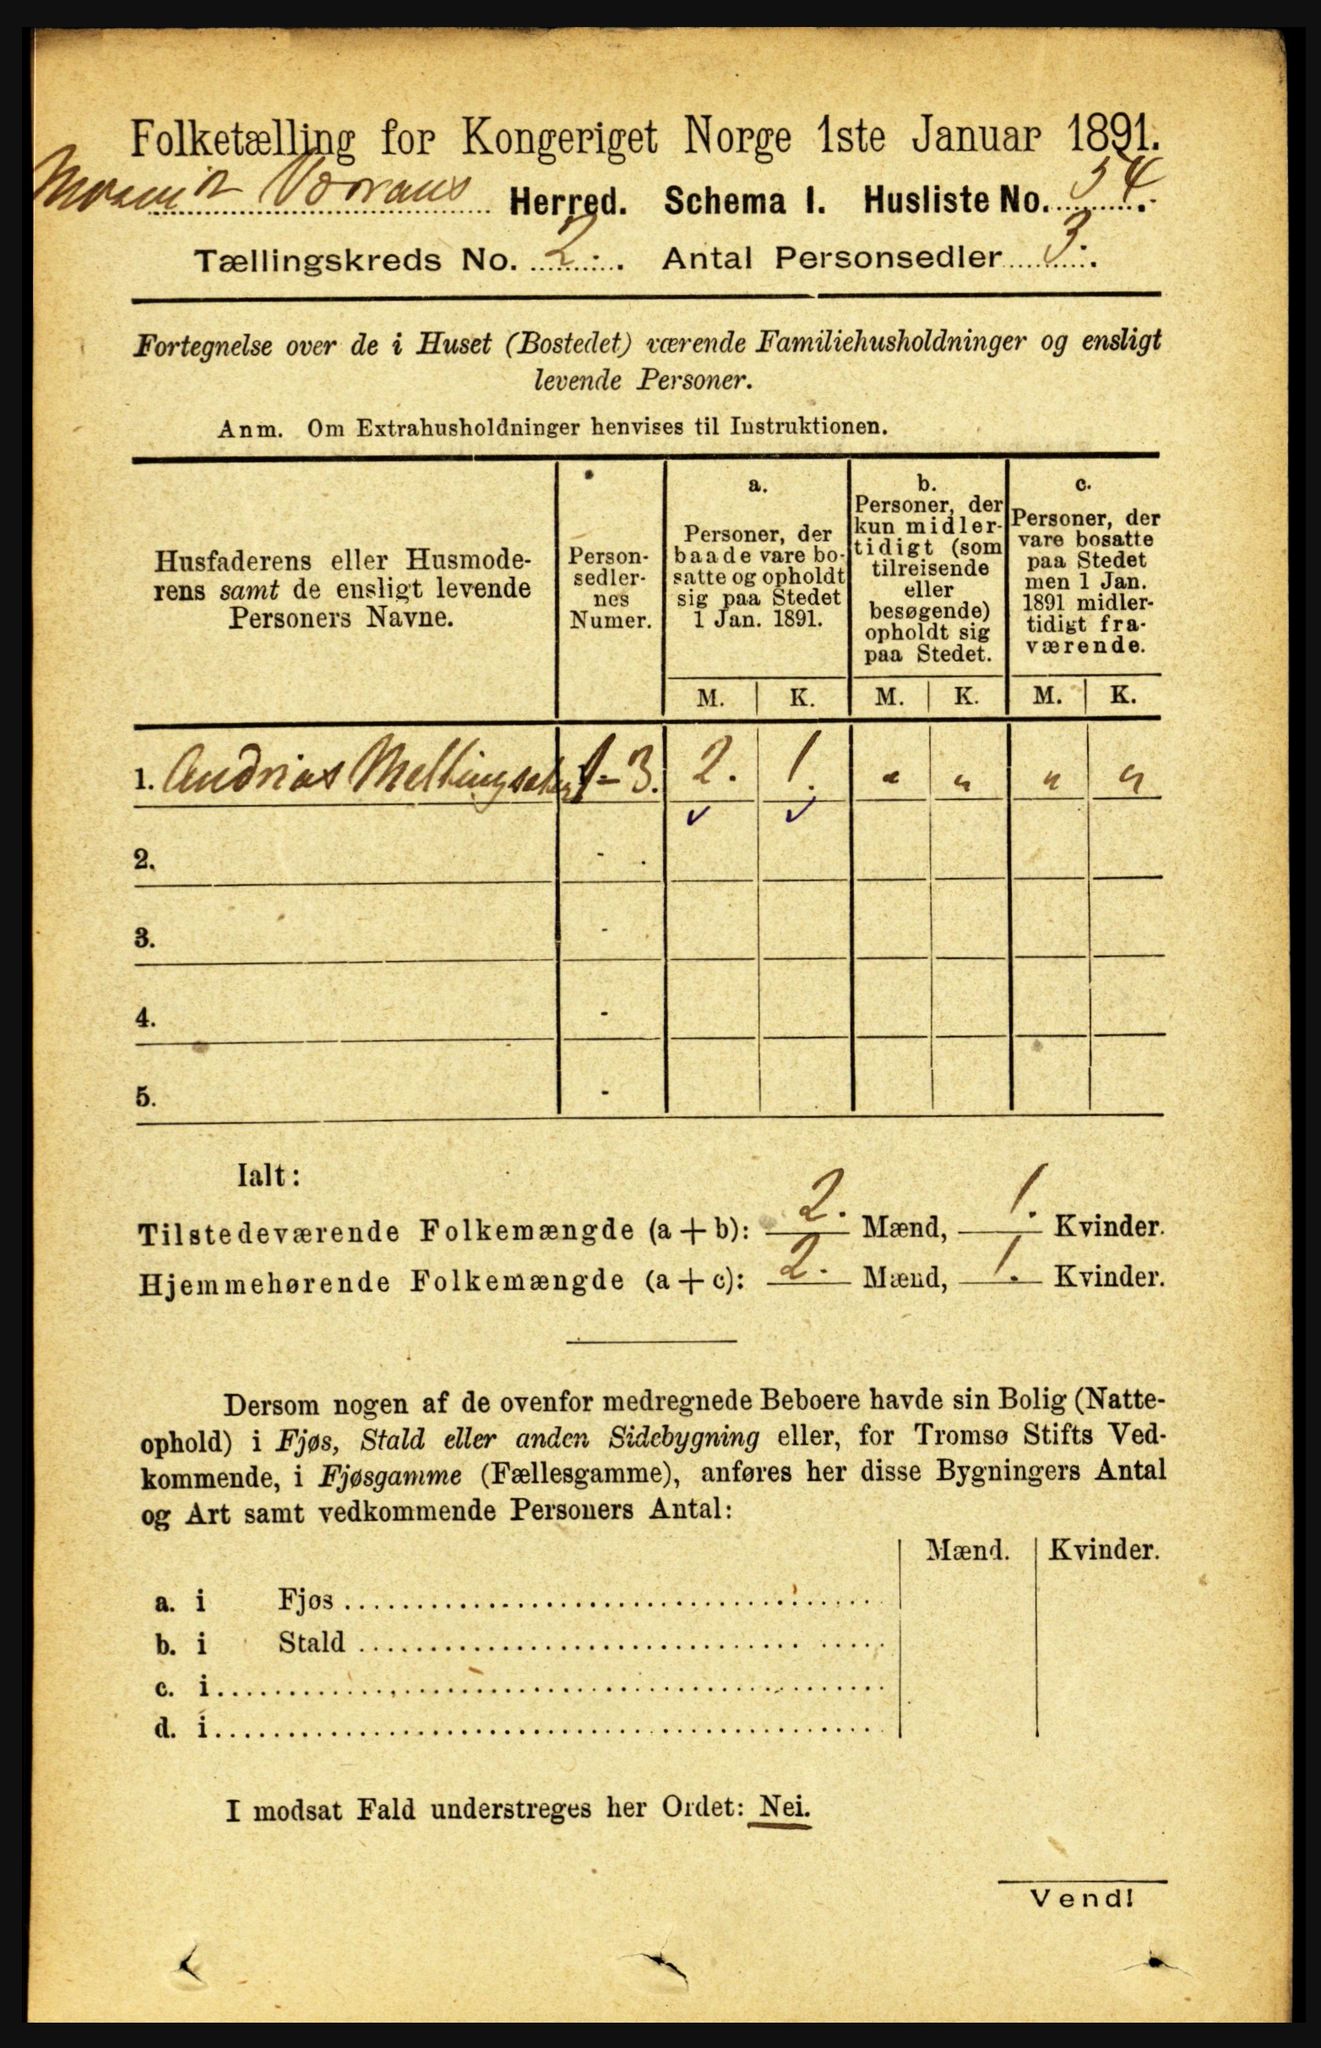 Folketælling for Kongeriget Norge 1ste Januar 1891.
Mosvik Værrans Herred. Schema I. Husliste No. 54.
Tællingskreds No. 2. Antal Personsedler 3.
Fortegnelse over de i Huset (Bostedet) værende Familiehusholdninger og ensligt
levende Personer.
Anm. Om Extrahusholdninger henvises til Instruktionen.
Husfaderens eller Husmode-
rens samt de ensligt levende
Personers Navne.
Person-
sedler-
nes
Numer.
a.
Personer, der
baade vare bo-
satte og opholdt
sig paa Stedet
1 Jan. 1891.
b.
Personer, der
kun midler-
tidigt (som
tilreisende
eller
besøgende)
opholdt sig
paa Stedet.
c.
Personer, der
vare bosatte
paa Stedet
men 1 Jan.
1891 midler-
tidigt fra-
værende.
M. K. M. K. M. K.
1. Andrias 1-3. 2. 1. " " " "
2. -
3. -
4. -
5. -
Ialt:
Tilstedeværende Folkemængde (a + b): 2. Mænd, 1. Kvinder.
Hjemmehørende Folkemængde (a + c): 2. Mænd, 1. Kvinder.
Dersom nogen af de ovenfor medregnede Beboere havde sin Bolig (Natte-
ophold) i Fjøs, Stald eller anden Sidebygning eller, for Tromsø Stifts Ved-
kommende, i Fjøsgamme (Fællesgamme), anføres her disse Bygningers Antal
og Art samt vedkommende Personers Antal:
Mænd. Kvinder.
a. i Fjøs
b. i Stald
c. i
d. i
I modsat Fald understreges her Ordet: Nei.
Vend!